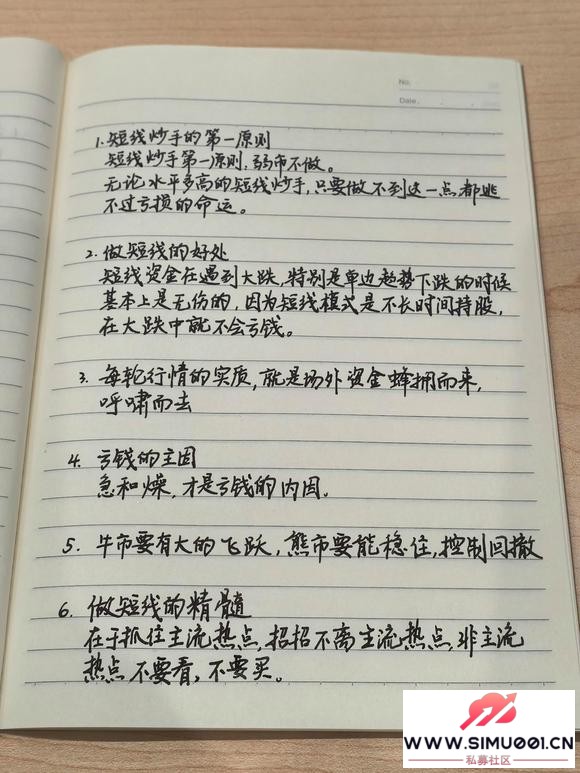 No.
Date.
1. 短线炒手的第一原则
短线炒手第一原则,弱市不做。
无论水平多高的短线炒手,只要做不到这一点,都逃
不过亏损的命运。
2. 做短线的好处
短线资金在遇到大跌,特别是单边趋势下跌的时候
基本上是无伤的,因为短线模式是不长时间持股,
在大跌中就不会亏钱。
3. 每轮行情的实质,就是场外资金蜂拥而来,
呼啸而去
4. 亏钱的主因
急和燥,才是亏钱的内因。
5. 牛市要有大的飞跃,熊市要能稳住,控制回撤
6. 做短线的精髓
在于抓住主流热点,招招不离主流热点,非主流
热点不要看,不要买。
WWW.SIMU001.CN
私募社区